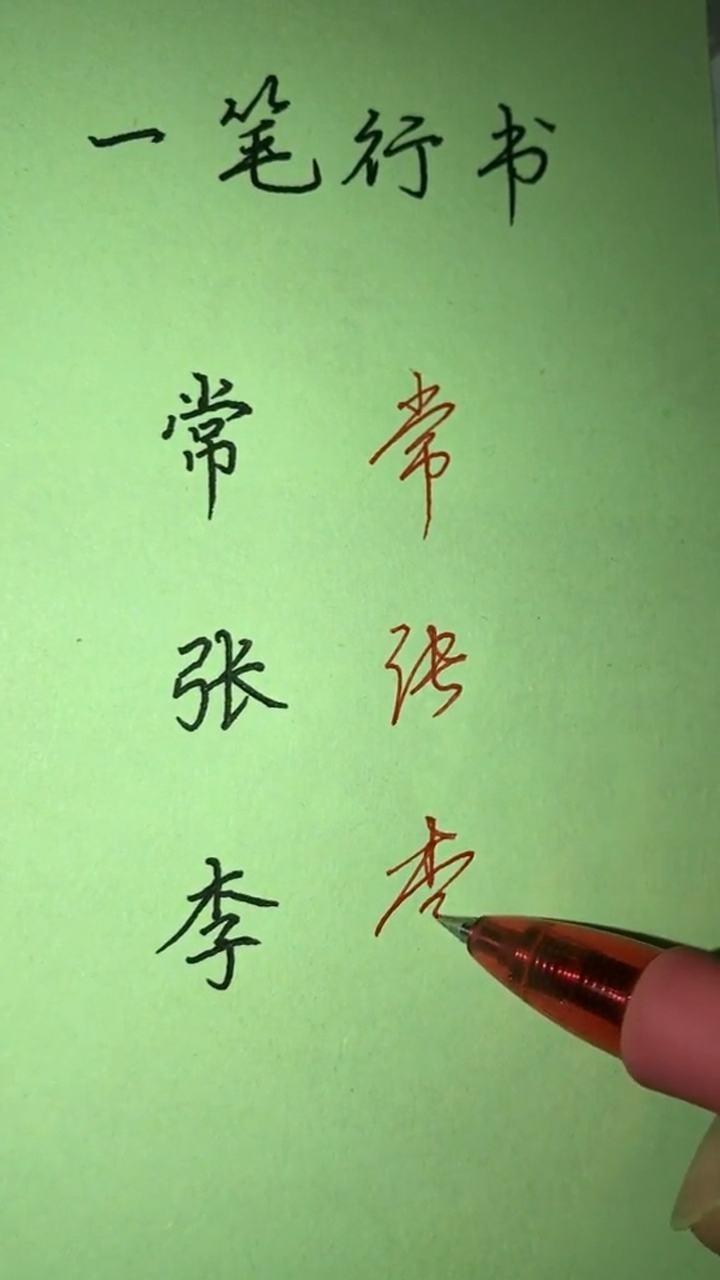 一笔行书
常 常
张 张
李 李